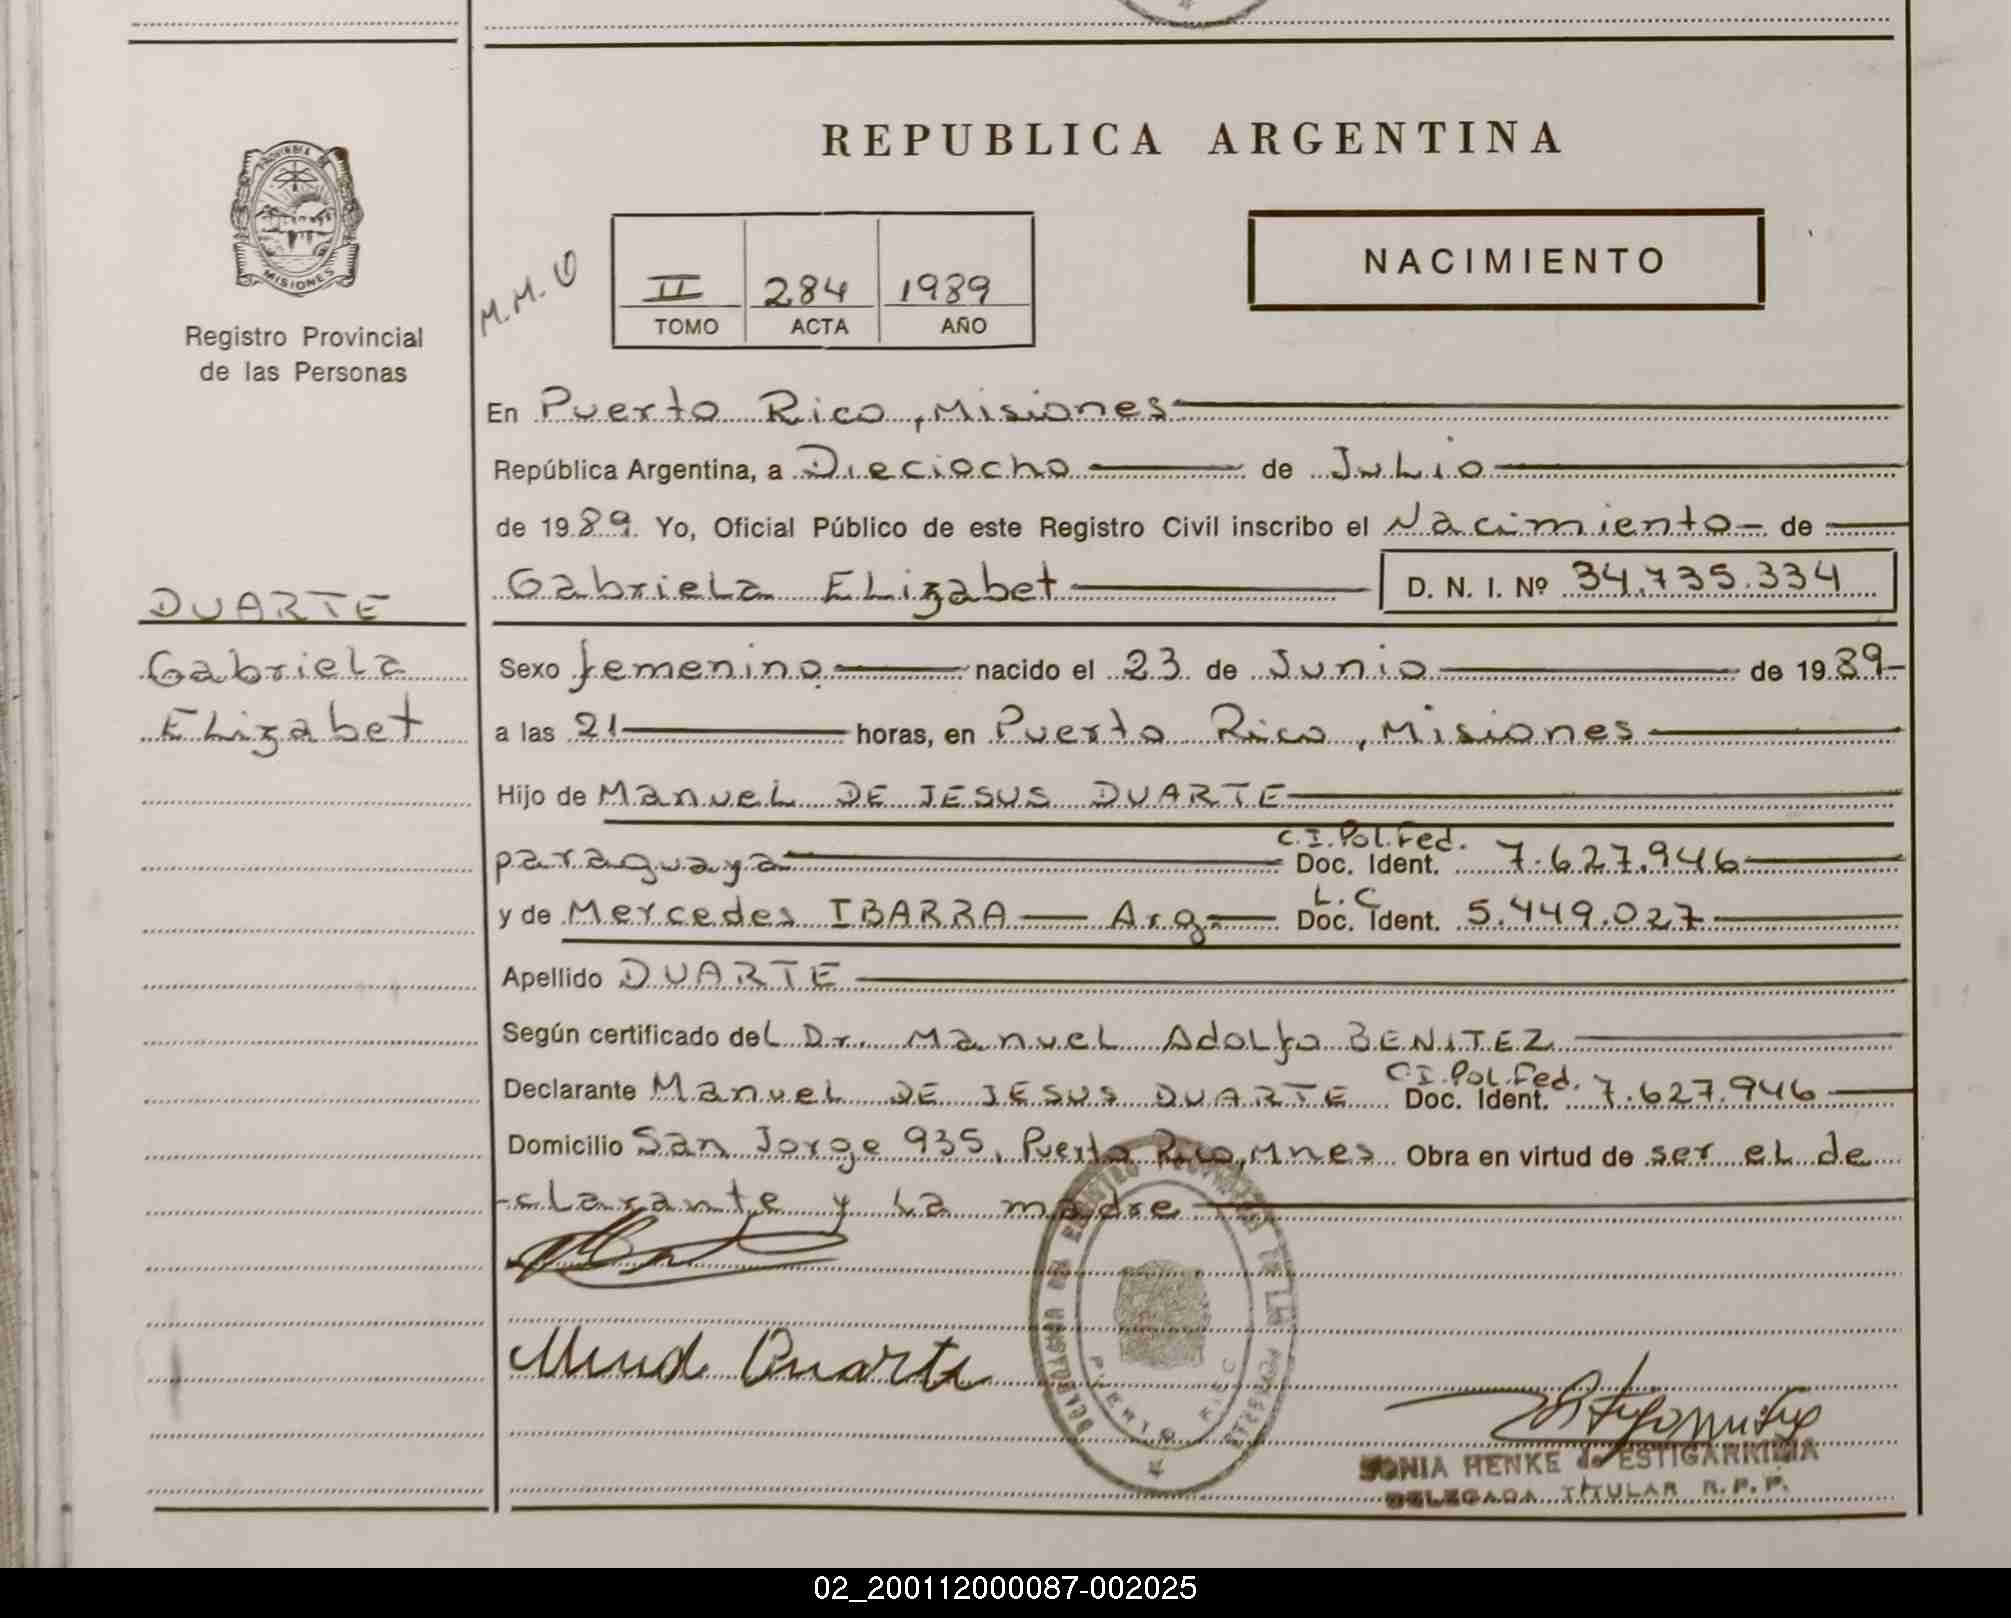 PROVINCIA DE
MISIONES
Registro Provincial
de las Personas
REPUBLICA ARGENTINA
M.M.O
II 284 1989
TOMO ACTA AÑO
NACIMIENTO
En Puerto Rico, Misiones
República Argentina, a Dieciocho de Julio
de 1989. Yo, Oficial Público de este Registro Civil inscribo el Nacimiento de
Gabriela Elizabet D. N. I. Nº 34.735.334
DUARTE
Gabriela
Elizabet
Sexo femenino nacido el 23 de Junio de 1989
a las 21 horas, en Puerto Rico, Misiones
Hijo de Manuel DE JESUS DUARTE
paraguaya C.I.Pol.Fed. Doc. Ident. 7.627.946
y de Mercedes IBARRA Arg. L.C Doc. Ident. 5.449.027
Apellido DUARTE
Según certificado del Dr. Manuel Adolfo BENITEZ
Declarante Manuel DE JESUS DUARTE C.I.Pol.Fed. Doc. Ident. 7.627.946
Domicilio San Jorge 935, Puerto Rico, Mnes Obra en virtud de ser el de
-clarante y la madre
Duarte
PUERTO RICO
SONIA HENKE de ESTIGARRIBIA
DELEGADA TITULAR R.P.P.
02_200112000087-002025